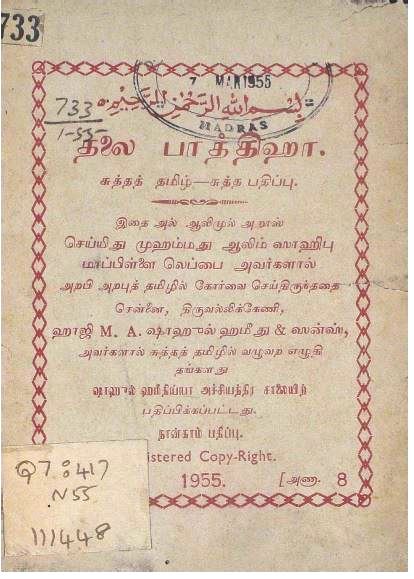 733
7 MAR 1955
بسم الله الرحمن الرحيم
MADRAS
733
1-55
தலை பாத்திஹா.
சுத்தத் தமிழ்—சுத்த பதிப்பு.
இதை அல் ஆலிமுல் அறூஸ்
செய்யிது முஹம்மது ஆலிம் ஸாஹிபு
மாப்பிள்ளை லெப்பை அவர்களால்
அறபி அறபுத் தமிழில் கோர்வை செய்திருந்ததை
சென்னை, திருவல்லிக்கேணி,
ஹாஜி M. A. ஷாஹுல் ஹமீது & ஸன்ஸ்,
அவர்களால் சுத்தத் தமிழில் வழுவற எழுதி
தங்களது
ஷாஹுல் ஹமீதிய்யா அச்சியந்திர சாலையிற்
பதிப்பிக்கப்பட்டது.
நான்காம் பதிப்பு.
istered Copy-Right.
1955. [அணா. 8
Q7:417
N55
111448